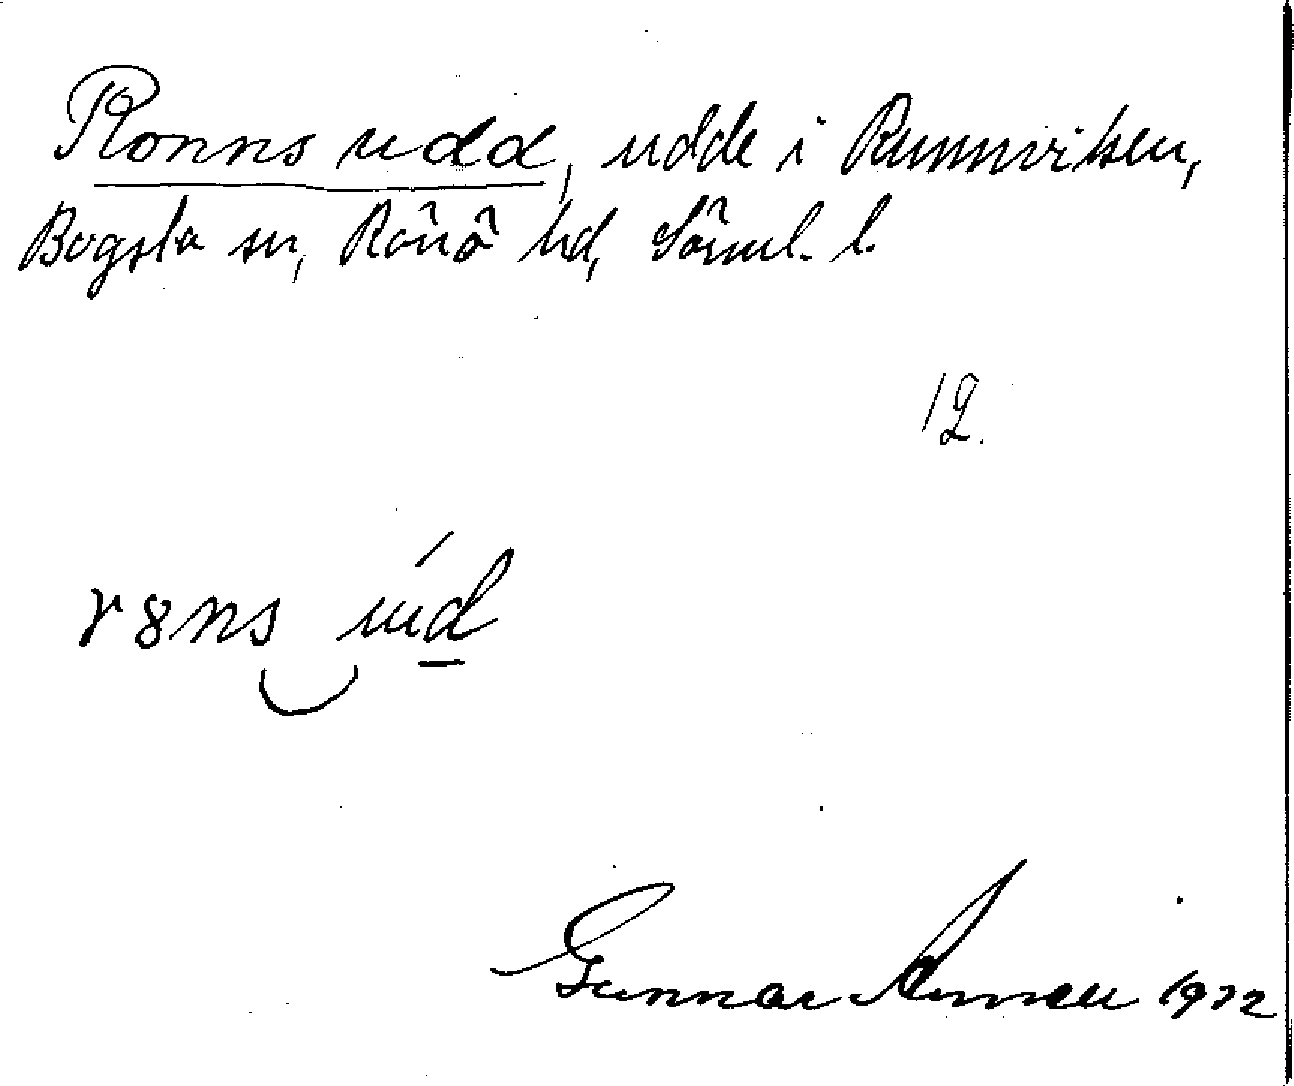 Ronns udd, udde i Runnviken,
Bogsta sn, Rönö hd, Söml. l.
12.
r8ns ud
Gunnar 1932